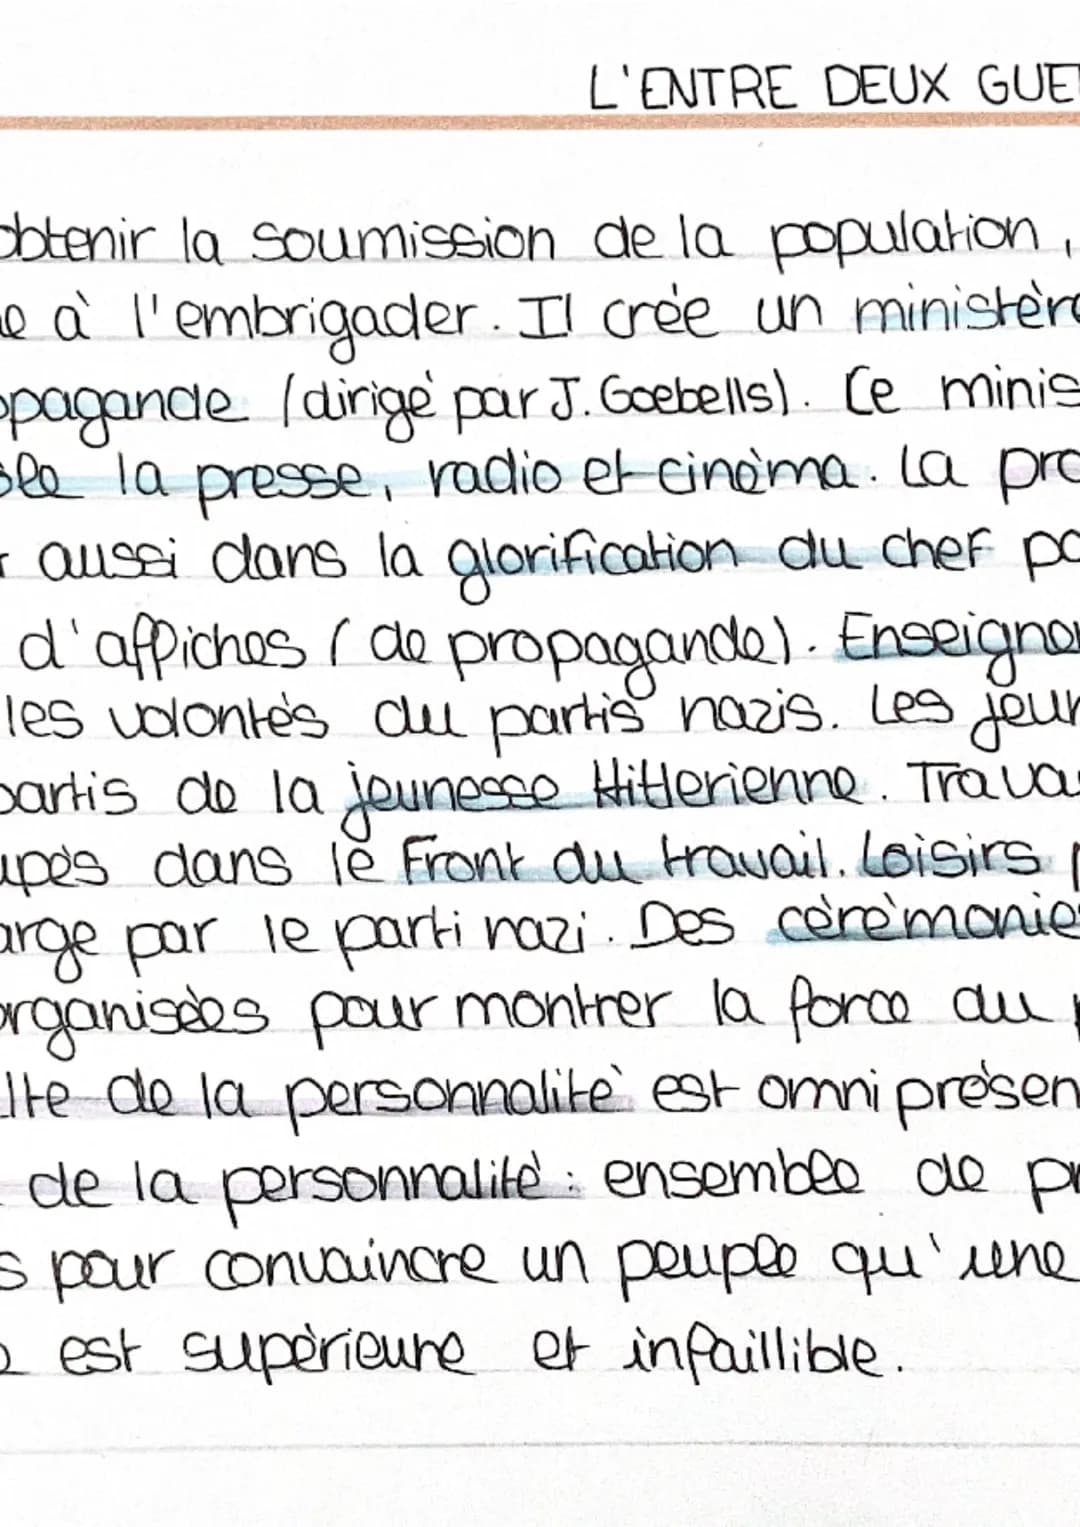 L'ENTRE DEUX GUE
obtenir la soumission de la population,
e à l'embrigader. Il crée un ministère
opagande (dirigé par J. Goebells). Ce minis
ole la presse, radio et cinéma. La pro
aussi dans la glorification du chef pa
d'affiches (de propagande). Enseigne
les volontés du partis nazis. Les jeun
partis de la jeunesse Hitlerienne. Trava
upés dans le Front du travail. Loisirs p
arge par le parti nazi. Des cérémonie
organisées pour montrer la force du p
lte de la personnalité est omniprésen
de la personnalité : ensemble de pr
s pour convaincre un peuple qu'une
e est supérieure et infaillible.